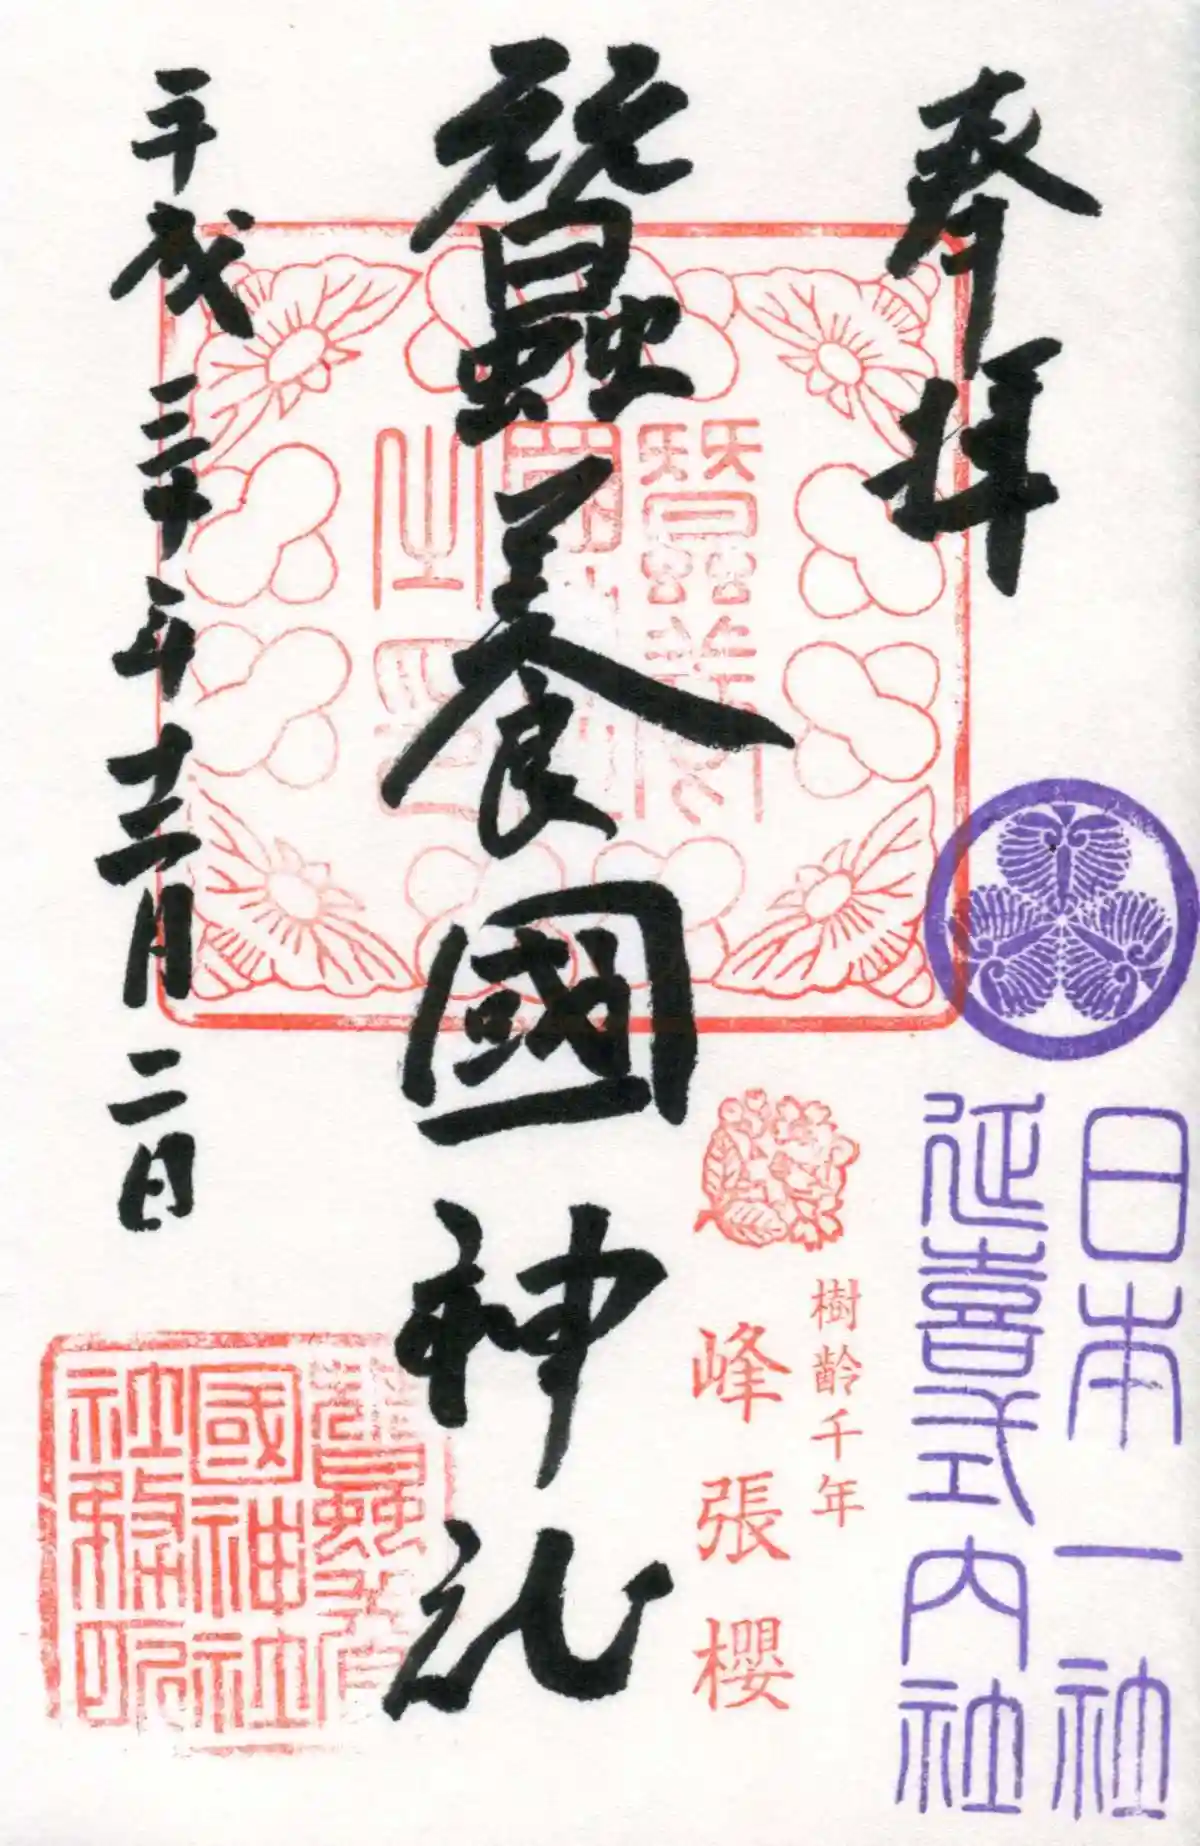 奉拝
日本一社
延喜式内社
樹齢千年
峰張櫻
蠶養國神社
蠶養
國神社
社務所
平成三十年十二月二日